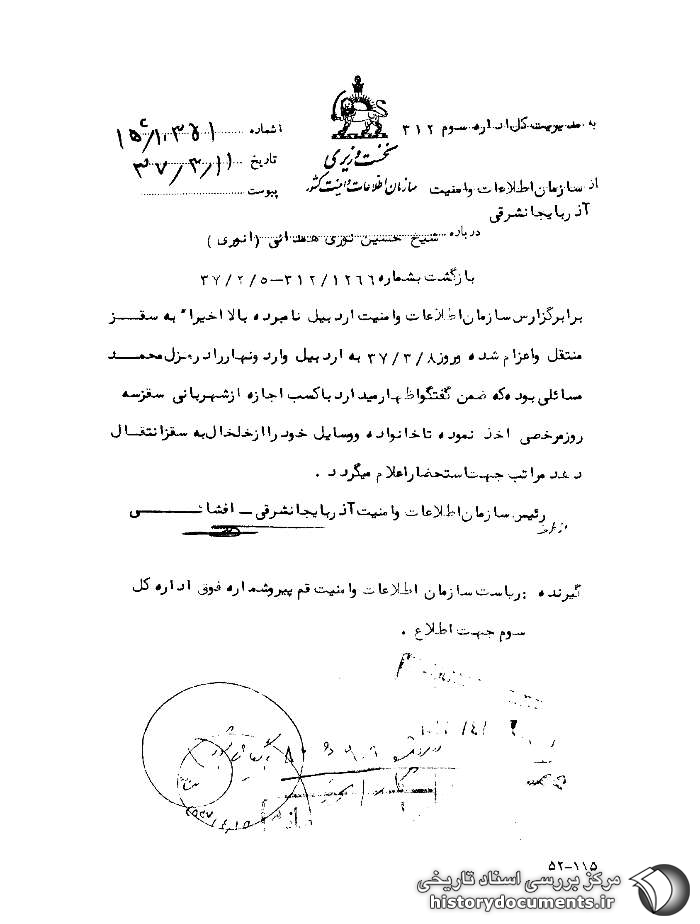 به مدیریت کل اداره سوم ۳۱۲
شماره
نخست وزیری
تاریخ ۳۷/۳/۱۱
از سازمان اطلاعات وامنیت
سازمان اطلاعات و امنیت کشور
پیوست
آذربایجانشرقی
درباره شیخ حسین نوری همدانی (انوری)
بازگشت بشماره ۳۱۲/۱۲۶۶-۳۷/۲/۵
برابرگزارس سازمان اطلاعات وامنیت اردبیل نامبرده بالا اخیرا" به سقز
منتقل واعزام شده وروز ۳۷/۳/۸ به اردبیل وارد ونهاررادرمنزل محمد
مسائلی بوده که ضمن گفتگواظهارمیدارد باکسب اجازه ازشهربانی سقزسه
روزمرخصی اخذ نموده تاخانواده ووسایل خودراازخلخال به سقزانتقال
دهد مراتب جهت استحضاراعلام میگردد .
رئیس سازمان اطلاعات وامنیت آذربایجانشرقی - افشانی
از طرف
گیرنده : ریاست سازمان اطلاعات وامنیت قم پیروشماره فوق اداره کل
سوم جهت اطلاع .
۵۲-۱۱۵
مرکز بررسی اسناد تاریخی
historydocuments.ir